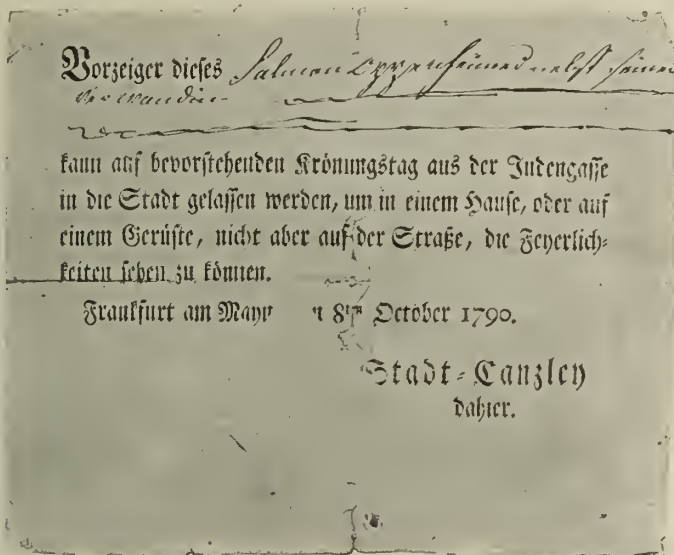 Vorzeiger dieses Salmon Oppenheimer nebst seinen
verwandten
kann auf bevorstehenden Krönungstag aus der Judengasse
in die Stadt gelassen werden, um in einem Hause, oder auf
einem Gerüste, nicht aber auf der Straße, die Feyerlich-
keiten sehen zu können.
Frankfurt am Mayn 8ᵗᵉⁿ October 1790.
Stadt-Canzley
dahier.